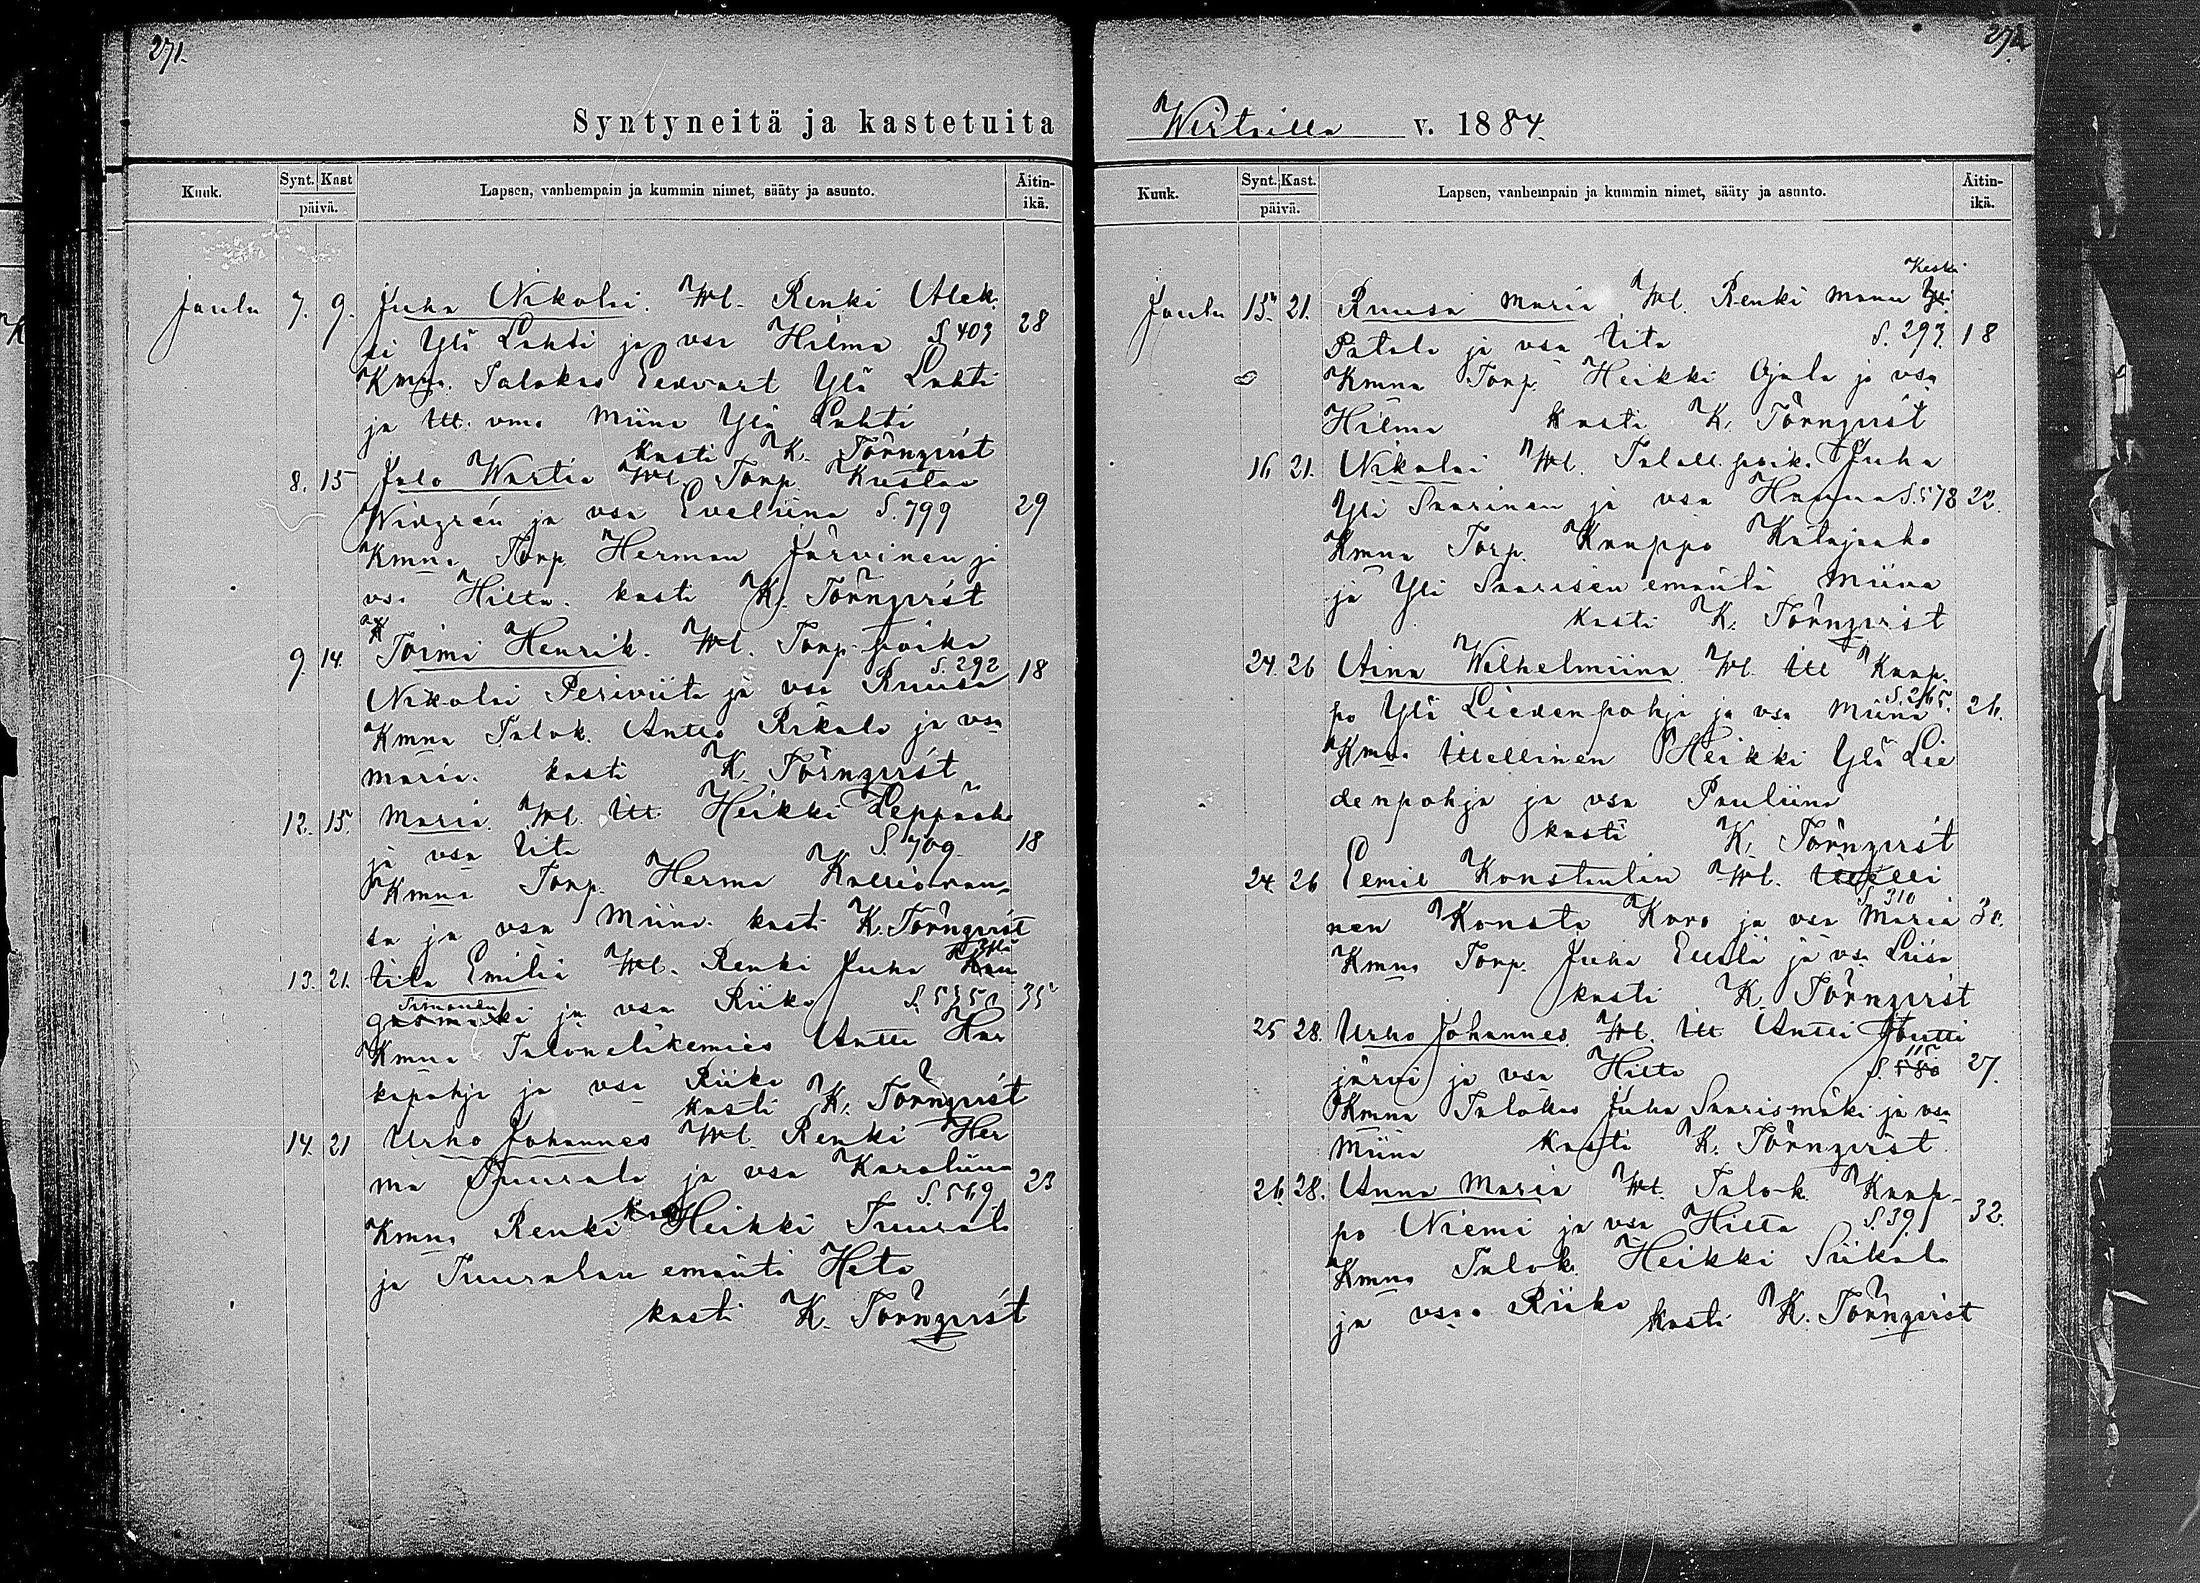 271.
Syntyneitä ja kastetuita
Kuuk. Synt. Kast päivä. Lapsen, vanhempain ja kummin nimet, sääty ja asunto. Äitin-ikä.
Joulu 7. 9. Juha Nikolai. Wl. Renki Alek
si Ylä Lahti ja vsa Hilma S. 403 28
Kmna. Talokas Eedvart Ylä Lahti
ja Itt. vmo Miina Ylä Lahti
kasti K. Törnqvist
8. 15 Jalo Wartia Wl. Torp. Kustaa
Widgrén ja vsa Eveliina S. 799 29
Kmna Torp Herman Järvinen ja
vsa Hilta. kasti K. Törnqvist
9. 14. Toimi Henrik. Wl. Torp. poika
Nikolai Periviita ja vsa Ruusa S. 292 18
Kmna Talok. Antto Rikala ja vsa
Maria. kasti K. Törnqvist
12. 15. Maria. Wl. Itt. Heikki Leppäaho
ja vsa Iita S. 709 18
Kmna Torp. Herma Kallioran
ta ja vsa Miina. kasti K. Törnqvist
13. 21. Iita Emilia Wl. Renki Juha
Simonen
ja vsa Riika 35
Kmna Talonelikemies Antti Har
kapohja ja vsa Riika
kasti K. Törnqvist
14. 21 Urho Johannes Wl. Renki Her
ma Tuurala ja vsa Karoliina
S. 569 23
Kmna Renki Heikki Tuurala
ja Tuuralan emäntä Heta
kasti K. Törnqvist
272
Wirtailla v. 1884.
Kuuk. Synt. Kast. päivä. Lapsen, vanhempain ja kummin nimet, sääty ja asunto. Äitin-ikä.
Keski
Joulu 15. 21. Ruusa Maria Wl. Renki Manu Yli
Patala ja vsa Iita S. 293. 18
Kmna Torp. Heikki Ojala ja vsa
Hilma kasti K. Törnqvist
16. 21. Nikolai Wl. Talall. poik. Juha
Yli Saarinen ja vsa Hanna S. 578 22.
Kmna Torp. Kaappo Katajaaho
ja Yli Saarisen emäntä Miina
kasti K. Törnqvist
24. 26 Aina Wilhelmiina Wl. Itt Kaap-
po Ylä Liedenpohja ja vsa Miina S. 265. 26.
Kmna Itsellinen Heikki Ylä Lie
denpohja ja vsa Pauliina
kasti K. Törnqvist
24. 26 Eemil Konstantin Wl. Itselli
S. 310
nen Konsta Karo ja vsa Maria 30.
Kmna Torp. Juha Eualä ja vsa Liisa
kasti K. Törnqvist
25 28. Urho Johannes Wl. Itt Antti Houtti
115
järvi ja vsa Hilta S. 580 27.
Kmna Talokas Juha Saarismäki ja vsa
Miina kasti K. Törnqvist.
26. 28. Anna Maria Wl. Talok. Kaap-
po Niemi ja vsa Hilta S. 39 32.
Kmna Talok. Heikki Siikala
ja vsa Riika kasti K. Törnqvist